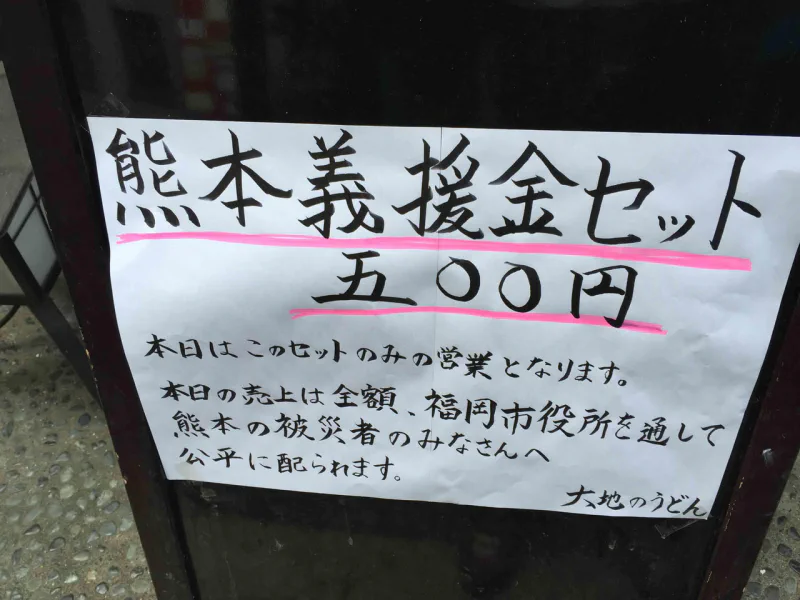 熊本義援金セット
五〇〇円
本日はこのセットのみの営業となります。
本日の売上は全額、福岡市役所を通して
熊本の被災者のみなさんへ
公平に配られます。
大地のうどん